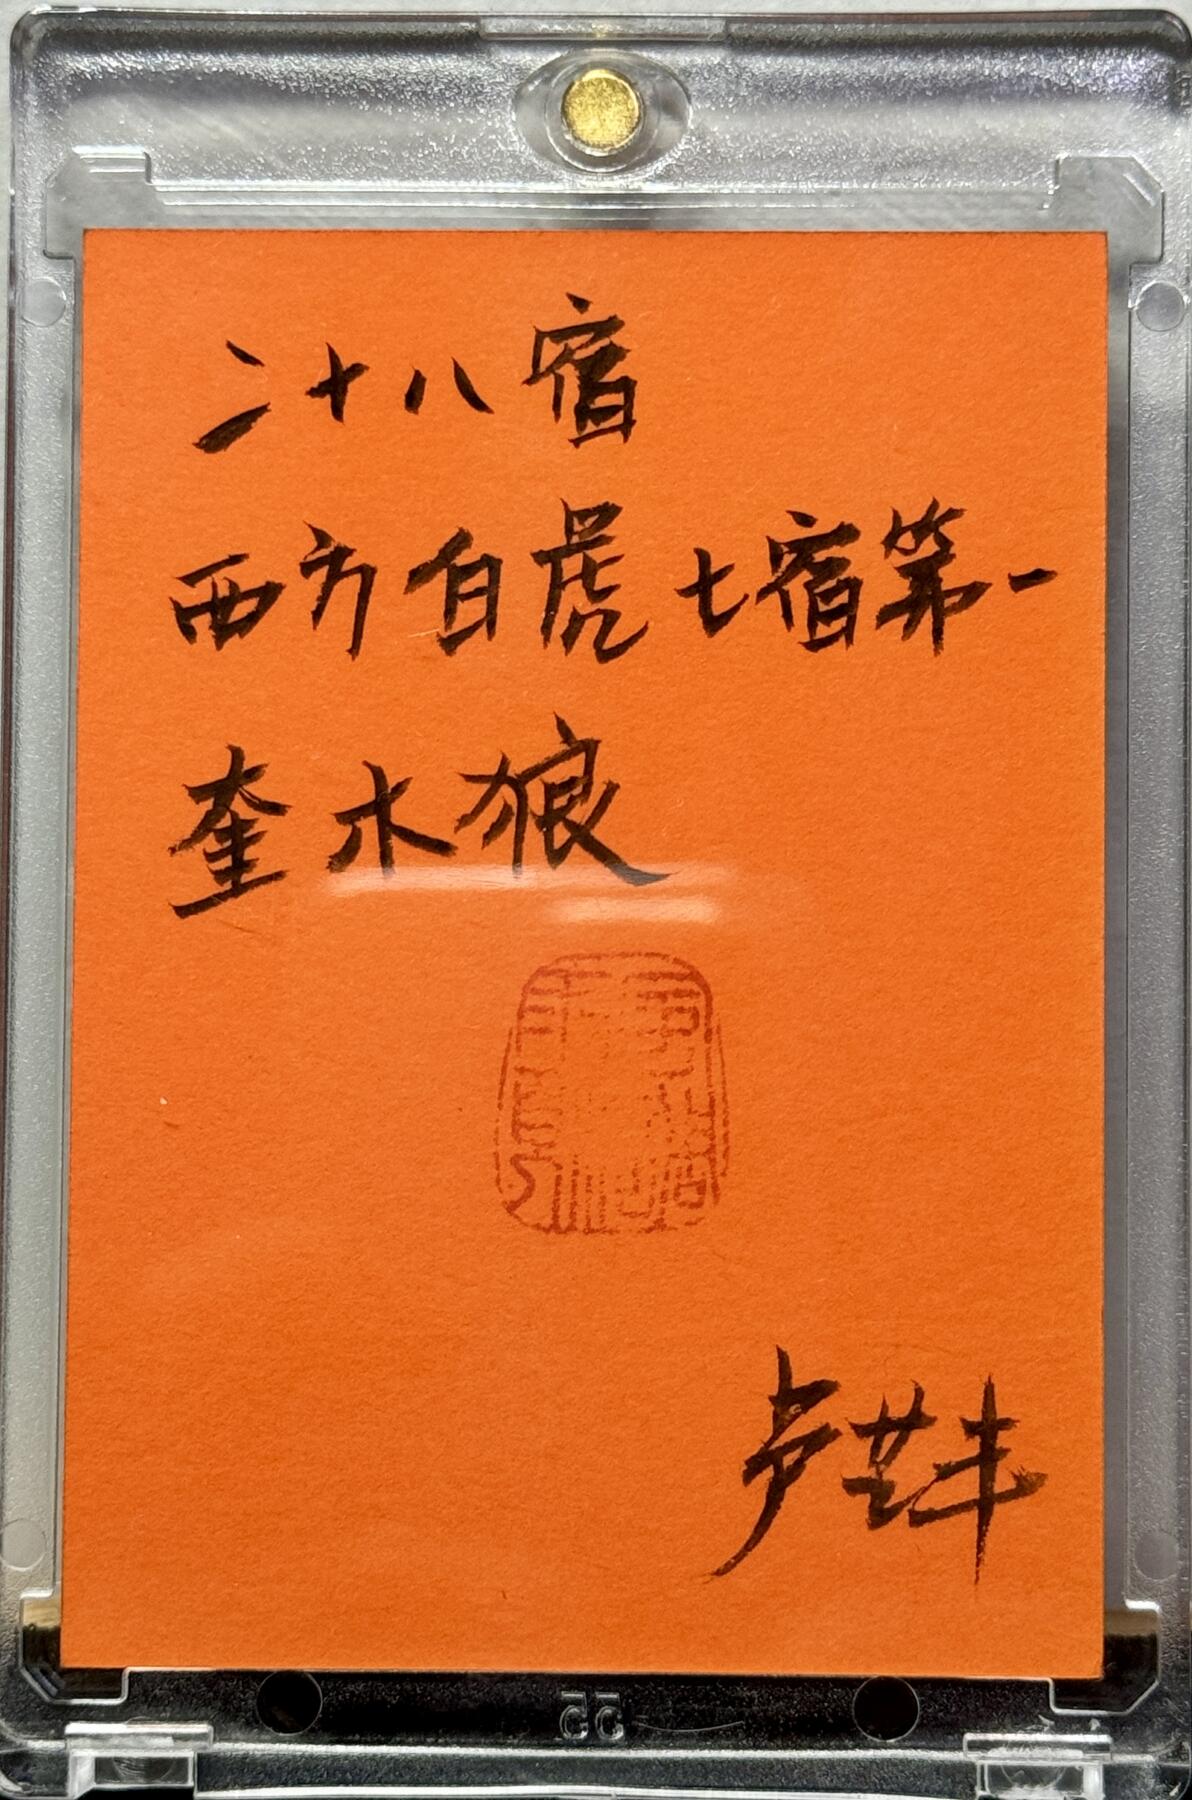 二十八宿
西方白虎七宿第一
奎木狼
卢世丰
55